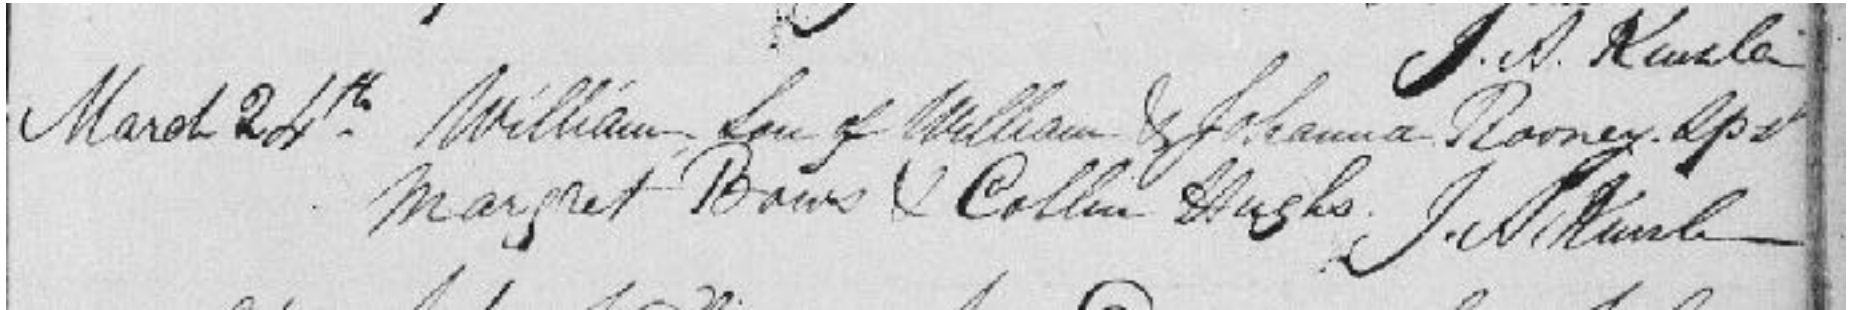 J. A. Kinsler
March 24th William, Son of William & Johanna Rooney. Sps
Margret Bows & Collin Hughs. J. A. Kinsl